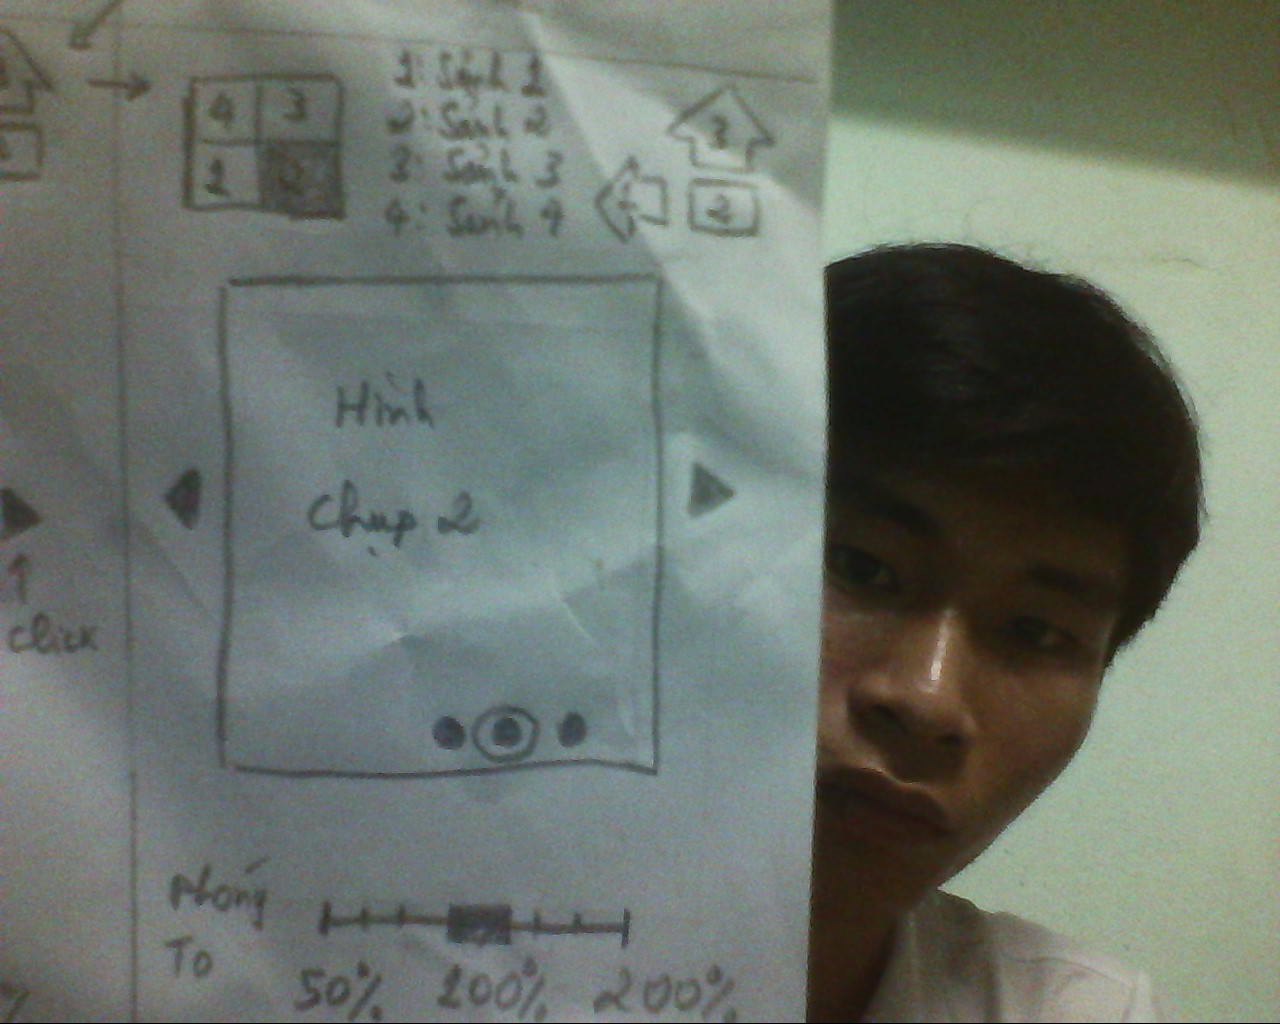 4 3
1 2
1: Sảnh 1
2: Sảnh 2
3: Sảnh 3
4: Sảnh 4
3
2
Hình
Chụp 2
click
Phóng
To
50% 100% 200%
%